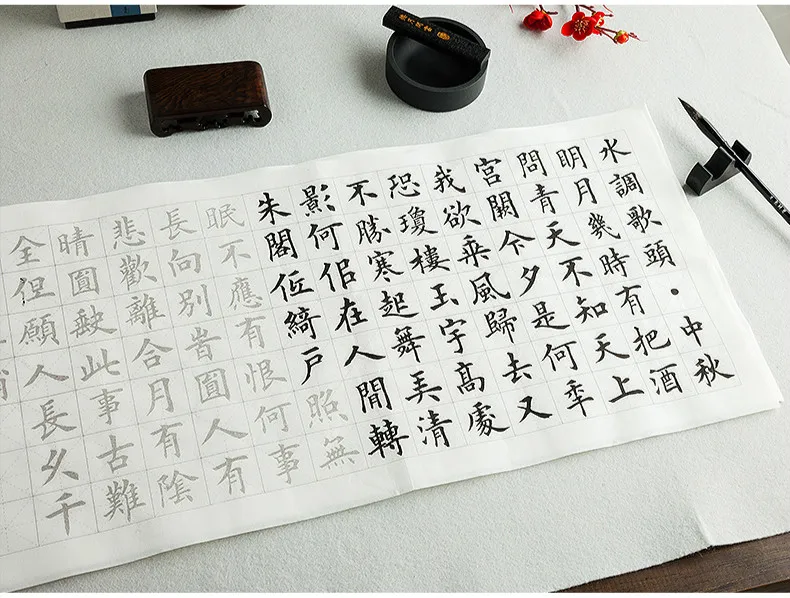 水調歌頭・中秋
明月幾時有把酒
問青天不知天上
宮闕今夕是何秊
我欲乗風歸去又
恐瓊樓玉宇高處
不勝寒起舞弄清
影何佀在人間轉
朱閣低綺戶照無
眠不應有恨何事
長向別旹圓人有
悲歡離合月有陰
晴圓缺此事古難
全但願人長久千